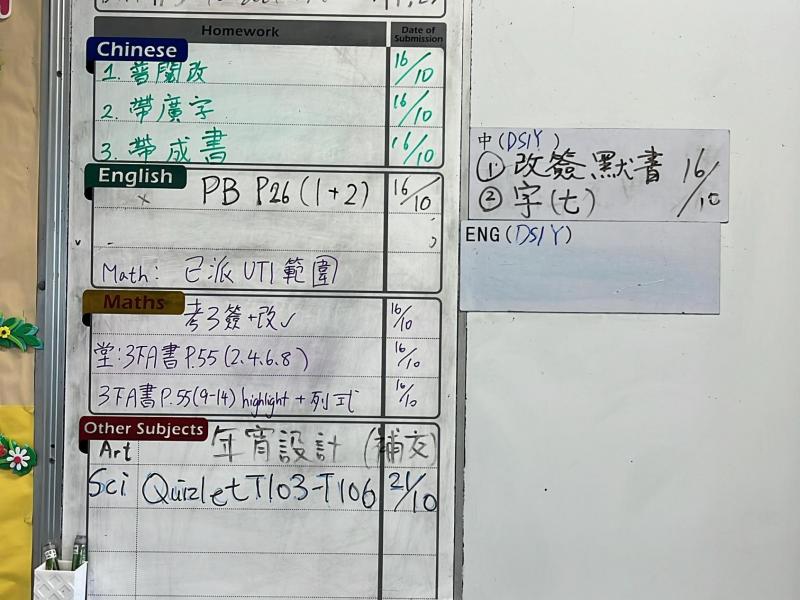 Homework
Date of Submission
Chinese
1. 普閱改 16/10
2. 帶廣字 16/10
3. 帶成書 16/10
English
PB P26 (1+2) 16/10
Math: 已派 UT1 範圍
Maths
考3簽+改✓ 16/10
堂:3下A書 P.55 (2.4.6.8) 16/10
3下A書 P.55 (9-14) highlight + 列式 16/10
Other Subjects
Art 年宵設計 (補交)
Sci Quizlet T103-T106 21/10
中 (DSIY)
① 改簽默書 16/10
② 字(七)
ENG (DSIY)